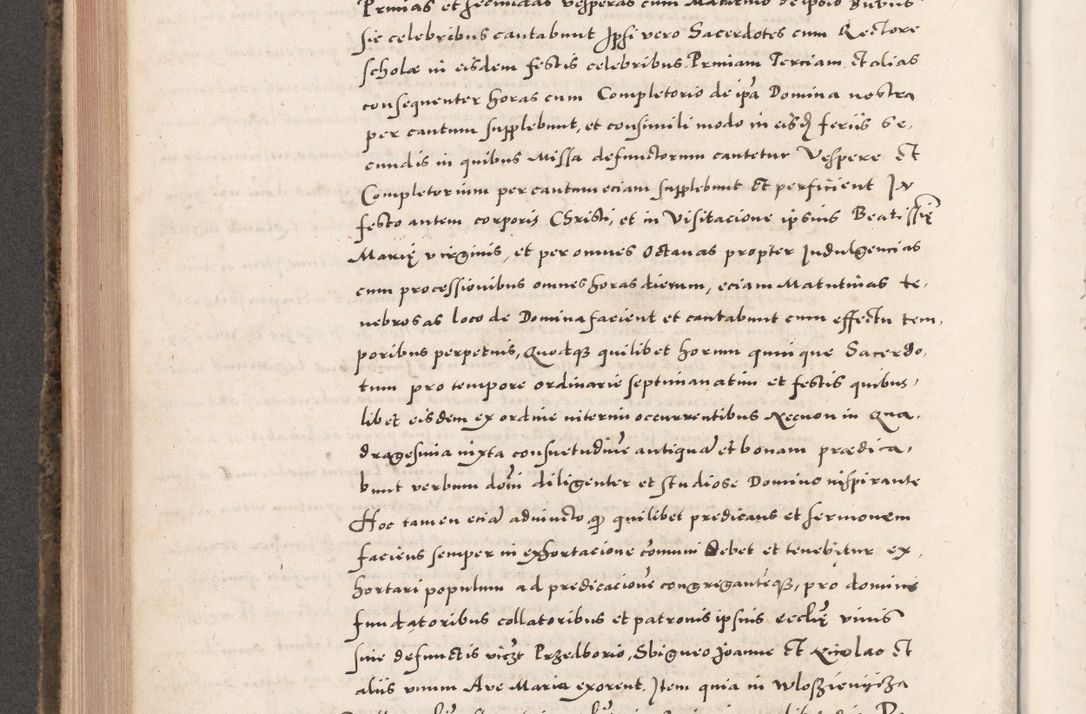 Primas et secundas vesperas cum Maturino de ipsis diebus
sic celebribus cantabunt Ipsi vero Sacerdotes cum Rectore
scholæ in eisdem festis celebribus Primam Terciam et alias
consequenter horas cum Completorio de ipa Domina nostra
per cantum supplebunt, et consimili modo in eisd feriis Se,
cundis in quibus Missa defunctorum cantetur Vespere et
Completorium per cantum eciam supplebunt et perficient In
festo autem corporis Christi, et in Visitacione ipsius Beatissię
Marię virginis, et per omnes Octavas propter Indulgencias
cum processionibus omnes horas dierum, eciam Matutinas te,
nebrosas loco de Domina facient et cantabunt cum effectu tem,
poribus perpetuis, Quodque quilibet horum quinque Sacerdo,
tum pro tempore ordinarie septimanatim et festis quibus,
libet eisdem ex ordine interim occurrentibus Necnon in Qua,
dragesima iuxta consuetudinē antiquā et bonam prædica,
bunt verbum domi diligenter et studiose Domino inspirante
Hoc tamen eciā adiuncto, q quilibet predicans et sermonem
faciens semper in exhortacione comuni debet et tenebitur ex,
hortari populum ad predicacionē congreganteque, pro dominis
fundatoribus collatoribus et patronis ipsius ecclię vivis
sive defunctis viczt Przedborio, Sbigneo Joanne et Nicolao et
aliis unum Ave Maria exorent, Item quia in Wloszienijcza